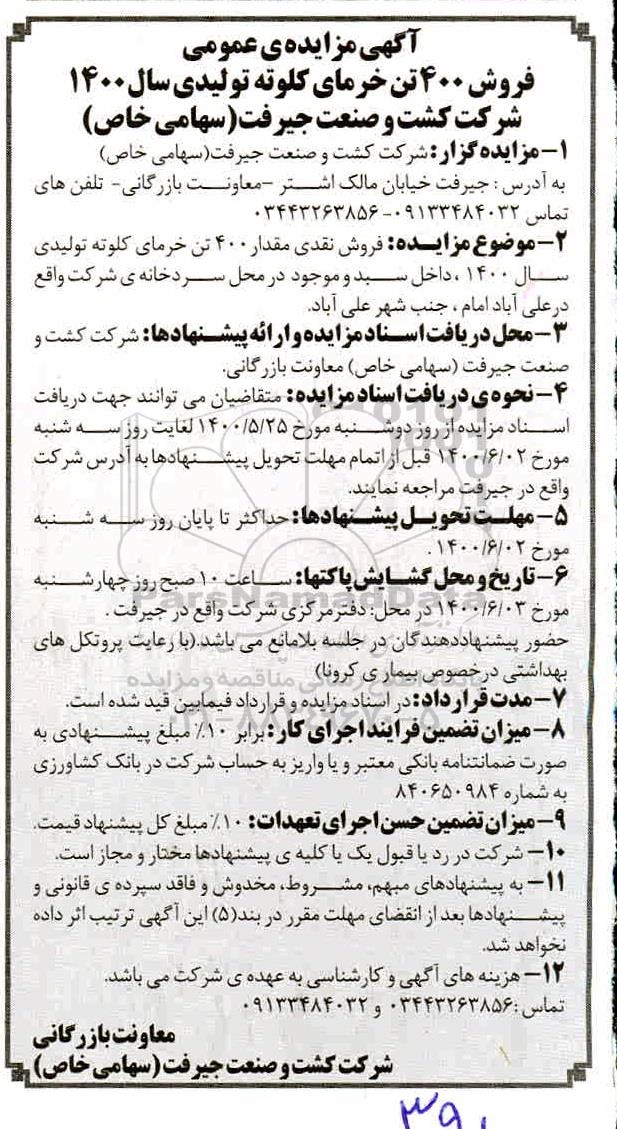 آگهی مزایده ی عمومی
فروش ۴۰۰ تن خرمای کلوته تولیدی سال ۱۴۰۰
شرکت کشت و صنعت جیرفت (سهامی خاص)
۱- مزایده گزار: شرکت کشت و صنعت جیرفت (سهامی خاص)
به آدرس : جیرفت خیابان مالک اشتر -معاونت بازرگانی- تلفن های
تماس ۰۹۱۳۳۴۸۴۰۳۲-۰۳۴۴۳۲۶۳۸۵۶
۲- موضوع مزایده: فروش نقدی مقدار ۴۰۰ تن خرمای کلوته تولیدی
سال ۱۴۰۰ ، داخل سبد و موجود در محل سردخانه ی شرکت واقع
درعلی آباد امام ، جنب شهر علی آباد.
۳- محل دریافت اسناد مزایده و ارائه پیشنهادها: شرکت کشت و
صنعت جیرفت (سهامی خاص) معاونت بازرگانی.
۴- نحوه ی دریافت اسناد مزایده: متقاضیان می توانند جهت دریافت
اسناد مزایده از روز دوشنبه مورخ ۱۴۰۰/۵/۲۵ لغایت روز سه شنبه
مورخ ۱۴۰۰/۶/۰۲ قبل از اتمام مهلت تحویل پیشنهادها به آدرس شرکت
واقع در جیرفت مراجعه نمایند.
۵- مهلت تحویل پیشنهادها: حداکثر تا پایان روز سه شنبه
مورخ ۱۴۰۰/۶/۰۲ .
۶- تاریخ و محل گشایش پاکتها: ساعت ۱۰ صبح روز چهارشنبه
مورخ ۱۴۰۰/۶/۰۳ در محل: دفتر مرکزی شرکت واقع در جیرفت .
حضور پیشنهاددهندگان در جلسه بلامانع می باشد.(با رعایت پروتکل های
بهداشتی درخصوص بیماری کرونا)
۷- مدت قرارداد: در اسناد مزایده و قرارداد فیمابین قید شده است.
۸- میزان تضمین فرایند اجرای کار: برابر ۱۰٪ مبلغ پیشنهادی به
صورت ضمانتنامه بانکی معتبر و یا واریز به حساب شرکت در بانک کشاورزی
به شماره ۸۴۰۶۵۰۹۸۴
۹- میزان تضمین حسن اجرای تعهدات: ۱۰٪ مبلغ کل پیشنهاد قیمت.
۱۰- شرکت در رد یا قبول یک یا کلیه ی پیشنهادها مختار و مجاز است.
۱۱- به پیشنهادهای مبهم، مشروط، مخدوش و فاقد سپرده ی قانونی و
پیشنهادها بعد از انقضای مهلت مقرر در بند(۵) این آگهی ترتیب اثر داده
نخواهد شد.
۱۲- هزینه های آگهی و کارشناسی به عهده ی شرکت می باشد.
تماس :۰۳۴۴۳۲۶۳۸۵۶ و ۰۹۱۳۳۴۸۴۰۳۲
معاونت بازرگانی
شرکت کشت و صنعت جیرفت (سهامی خاص)